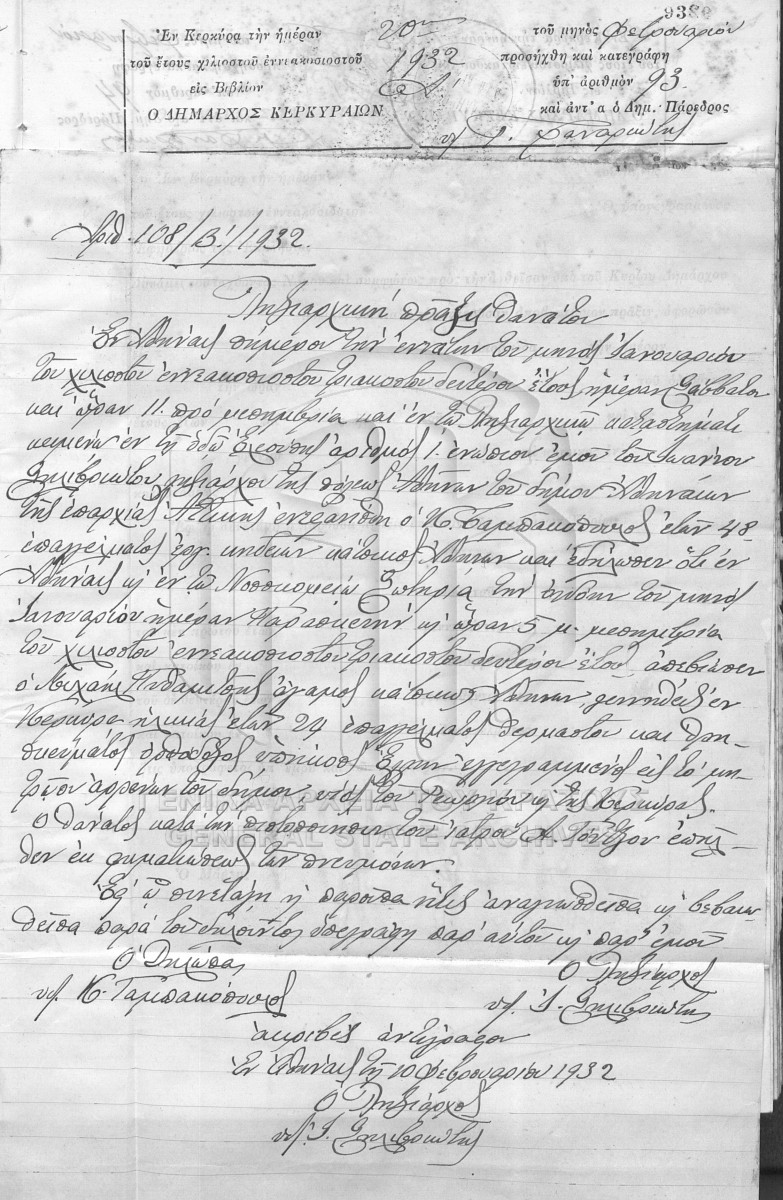 9386
Ἐν Κερκύρᾳ τὴν ἡμέραν 20ην τοῦ μηνὸς Φεβρουαρίου
τοῦ ἔτους χιλιοστοῦ ἐννεακοσιοστοῦ 1932 προσήχθη καὶ κατεγράφη
εἰς Βιβλίον Α' ὑπ' ἀριθμὸν 93
Ο ΔΗΜΑΡΧΟΣ ΚΕΡΚΥΡΑΙΩΝ καὶ ἀντ' α ὁ Δημ. Πάρεδρος
Φαναριώτης
Αριθ. 108/Β'/1932.
Ληξιαρχική πρᾶξις θανάτου
Ἐν Ἀθήναις σήμερον τὴν ἐννάτην τοῦ μηνός Ἰανουαρίου
τοῦ χιλιοστοῦ ἐννεακοσιοστοῦ τριακοστοῦ δευτέρου ἔτους ἡμέραν Σάββατον
καὶ ὥραν 11. πρό μεσημβρία καὶ ἐν τῷ Ληξιαρχικῷ καταστήματι
κειμένῳ ἐν τῇ ὁδῷ ἀριθμός 1. ἐνώπιον ἐμοῦ τοῦ Ἰωάννου
Σηλιβριώτου ληξιάρχου τῆς πόλεως Ἀθηνῶν τοῦ δήμου Ἀθηναίων
τῆς ἐπαρχίας Ἀττικῆς ἐνεφανίσθη ὁ Κ. Γαμπακόπουλος ἐτῶν 48
ἐπαγγέλματος ἐργ. κηδειῶν κάτοικος Ἀθηνῶν καὶ ἐδήλωσεν ὅτι ἐν
Ἀθήναις κ ἐν τῷ Νοσοκομείῳ Σωτηρία τὴν ὀγδόην τοῦ μηνός
Ἰανουαρίου ἡμέραν Παρασκευήν κ ὥραν 5 μ. μεσημβρία
τοῦ χιλιοστοῦ ἐννεακοσιοστοῦ τριακοστοῦ δευτέρου ἔτους ἀπεβίωσεν
ὁ Μιχαήλ ἄγαμος κάτοικος Ἀθηνῶν, γεννηθείς ἐν
Κερκύρᾳ ἡλικίας ἐτῶν 24 ἐπαγγέλματος θερμαστοῦ καὶ θρη-
σκεύματος ὀρθόδοξος ὑπήκοος Ἕλλην ἐγγεγραμμένος εἰς τό μη-
τρῷον ἀρρένων τοῦ δήμου υἱός τοῦ Γεωργίου κ τῆς Κερκύρας.
Ὁ θάνατος κατά τὴν πιστοποίησιν τοῦ ἰατροῦ Α. ἐπῆλ-
θεν ἐκ φυματιώσεως τῶν πνευμόνων.
Ἐφ' ᾧ συνετάγη ἡ παροῦσα ἥτις ἀναγνωσθεῖσα κ βεβαιω-
θεῖσα παρά τοῦ δηλοῦντος ὑπεγράφη παρ' αὐτοῦ κ παρ' ἐμοῦ
Ὁ Δηλώσας Ὁ Ληξίαρχος
υπ. Κ. Γαμπακόπουλος υπ. Ι. Σηλιβριώτης
ἀκριβές ἀντίγραφον
Ἐν Ἀθήναις τῇ 10 Φεβρουαρίου 1932
Ὁ Ληξίαρχος
υπ. Ι. Σηλιβριώτης
ΓΕΝΙΚΑ ΑΡΧΕΙΑ ΤΟΥ ΚΡΑΤΟΥΣ
GENERAL STATE ARCHIVES